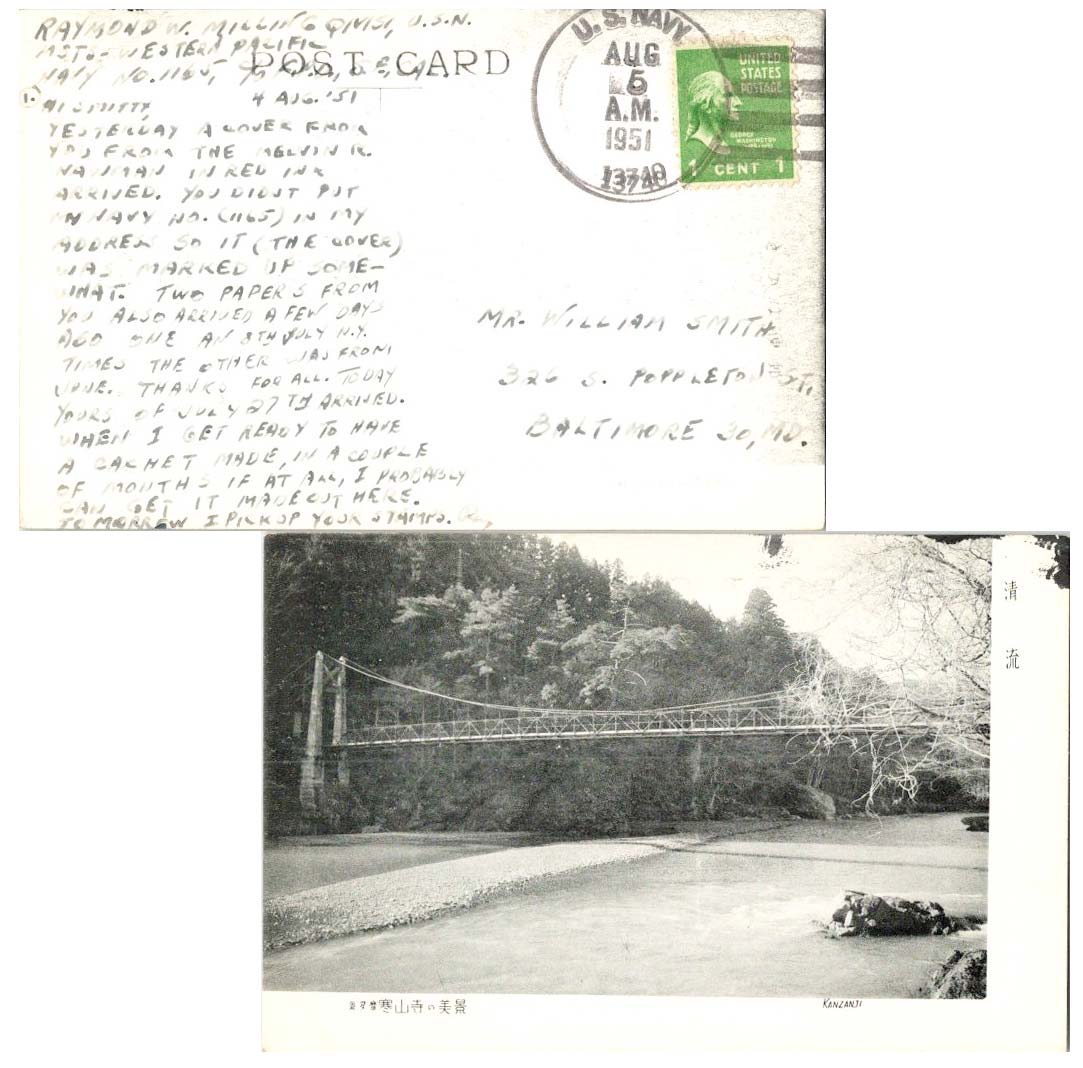 RAYMOND W. MILLING QMS1, U.S.N.
MSTS-WESTERN PACIFIC
NAVY NO. 1165,
POST CARD
4 AUG. '51
HI SMITTY,
YESTERDAY A COVER FROM
YOU FROM THE MELVIN R.
NAWMAN IN RED INK
ARRIVED. YOU DIDNT PUT
MY NAVY NO. (1165) IN MY
ADDRESS SO IT (THE COVER)
WAS MARKED UP SOME-
WHAT. TWO PAPERS FROM
YOU ALSO ARRIVED A FEW DAYS
AGO ONE AN 8TH JULY N.Y.
TIMES THE OTHER WAS FROM
JUNE. THANKS FOR ALL. TODAY
YOURS OF JULY 27TH ARRIVED.
WHEN I GET READY TO HAVE
A CACHET MADE, IN A COUPLE
OF MONTHS IF AT ALL, I PROBABLY
CAN GET IT MADE OUT HERE.
TOMORROW I PICK UP YOUR STAMPS.
U.S. NAVY
AUG
5
A.M.
1951
13740
UNITED
STATES
POSTAGE
GEORGE
WASHINGTON
1 CENT 1
MR. WILLIAM SMITH
326 S. POPPLETON ST,
BALTIMORE 30, MD.
清流
奥多摩寒山寺の美景
KANZANJI